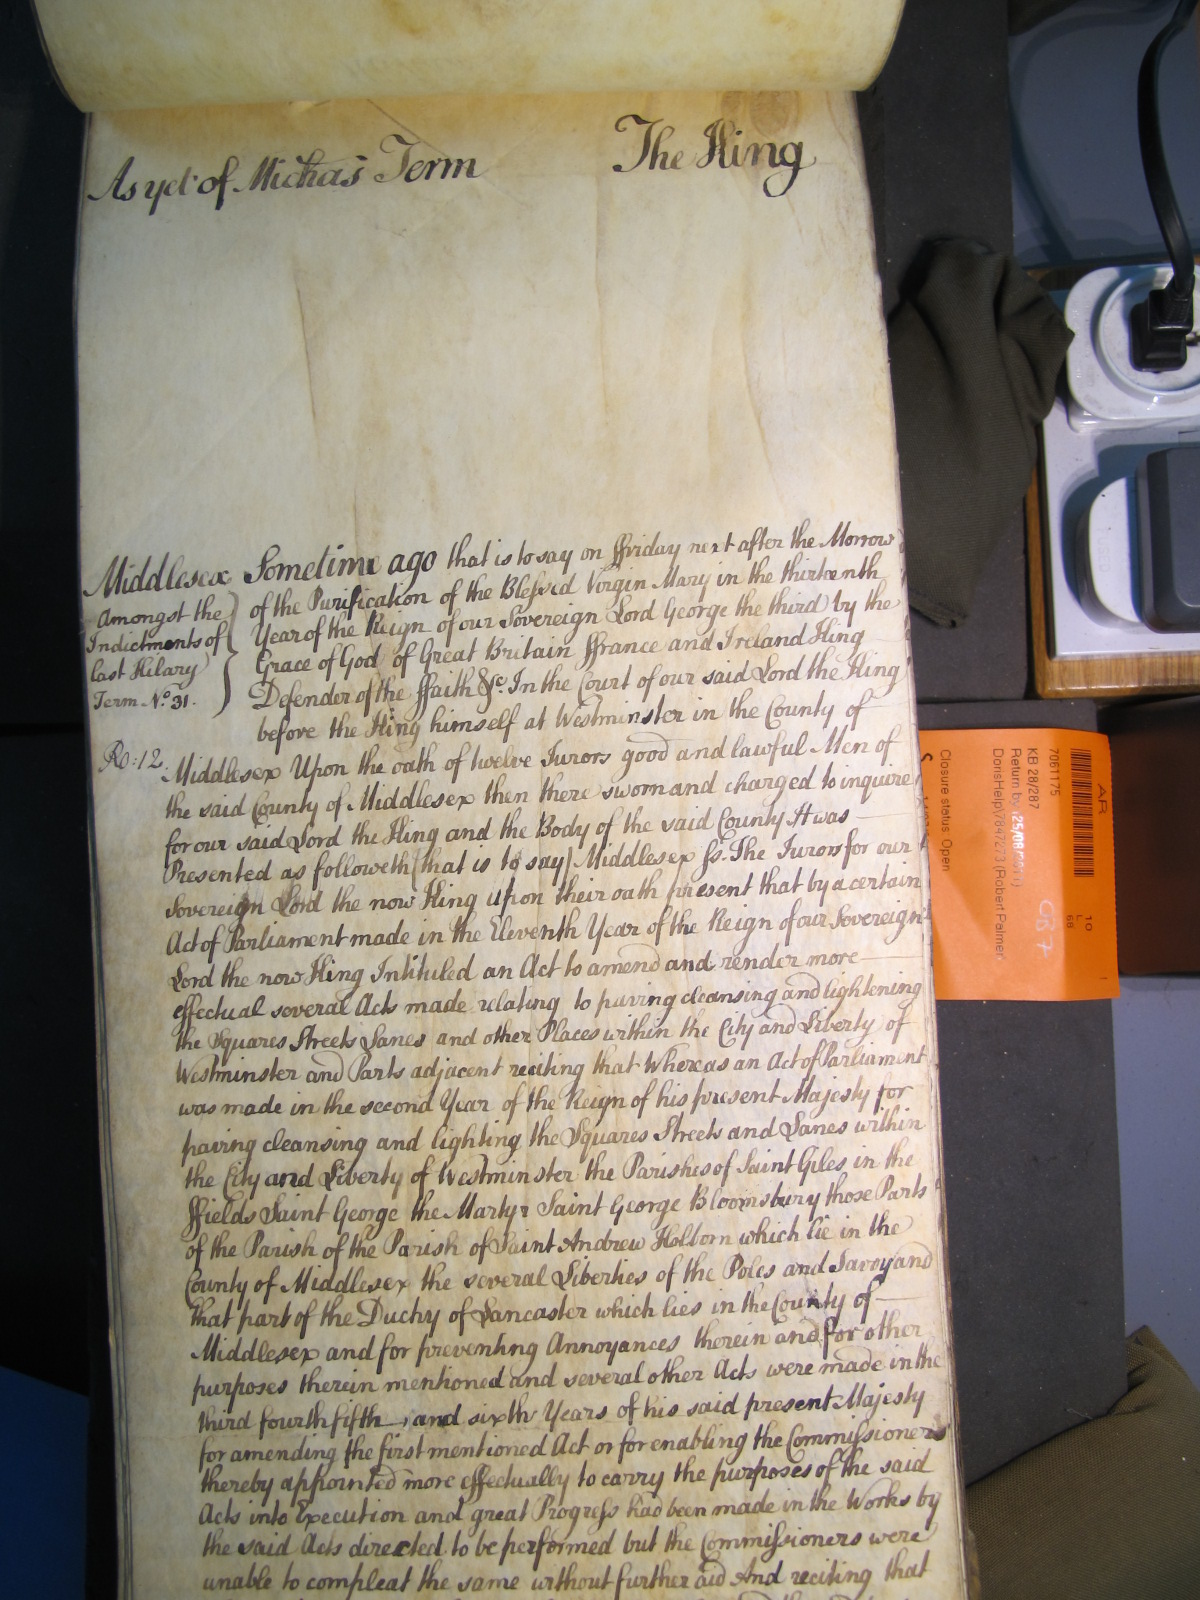 As yet of Michas Term The King
Middlesex Sometime ago that is to say on ffriday next after the Morrow
Amongst the
Indictments of
last Hilary
Term No. 31.
of the Purification of the Blessed Virgin Mary in the thirteenth
Year of the Reign of our Sovereign Lord George the third by the
Grace of God of Great Britain ffrance and Ireland King
Defender of the ffaith &c. In the Court of our said Lord the King
before the King himself at Westminster in the County of
Ro: 12.
Middlesex Upon the oath of twelve Jurors good and lawful Men of
the said County of Middlesex then there sworn and charged to inquire
for our said Lord the King and the Body of the said County It was
Presented as followeth (that is to say) Middlesex ss. The Jurors for our
Sovereign Lord the now King upon their oath present that by a certain
Act of Parliament made in the Eleventh Year of the Reign of our Sovereign
Lord the now King Intituled an Act to amend and render more
effectual several Acts made relating to paving cleansing and lightening
the Squares Streets Lanes and other Places within the City and Liberty of
Westminster and Parts adjacent reciting that Whereas an Act of Parliament
was made in the second Year of the Reign of his present Majesty for
paving cleansing and lighting the Squares Streets and Lanes within
the City and Liberty of Westminster the Parishes of Saint Giles in the
ffields Saint George the Martyr Saint George Bloomsbury those Parts
of the Parish of the Parish of Saint Andrew Holborn which lie in the
County of Middlesex the several Liberties of the Roles and Savoy and
that part of the Duchy of Lancaster which lies in the County of
Middlesex and for preventing Annoyances therein and for other
purposes therein mentioned and several other Acts were made in the
third fourth fifth and sixth Years of his said present Majesty
for amending the first mentioned Act or for enabling the Commissioners
thereby appointed more effectually to carry the purposes of the said
Acts into Execution and great Progress had been made in the Works by
the said Acts directed to be performed but the Commissioners were
unable to compleat the same without further aid And reciting that
AR
7061175
KB 28/287
Return by 25/08/2011
DorisHelp\7847273 (Robert Palmer
Closure status: Open